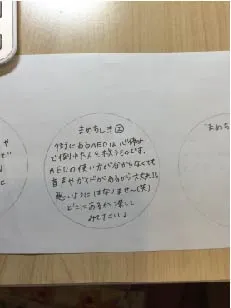 まめちしき②
街にあるAEDは心停止
で倒れた人を救うものです。
AEDの使い方が分からなくても
音声ガイドがあるから大丈夫!!
悪いようにはなりません(笑)
どこにあるか探して
みてださい♪
や
ど
に
c
"まめち